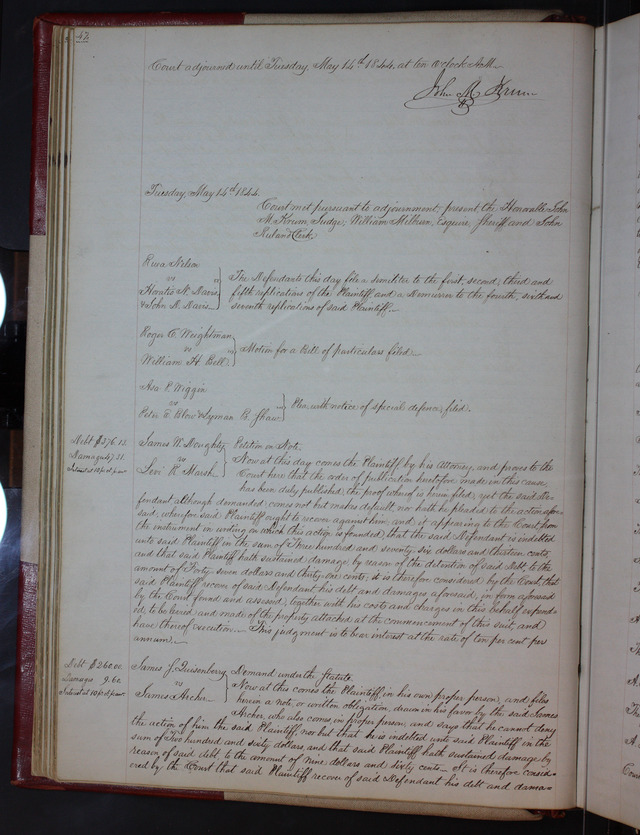 47
Court adjourned until Tuesday, May 14th 1844, at ten O'clock A.M.
John M. Krum
Tuesday, May 14th 1844.
Court met pursuant to adjournment, present, the Honorable John
M. Krum, Judge; William Milburn, Esquire, Sheriff and John
Ruland Clerk.
Nelson
vs
Horatio N. Davis
& John D. Davis
The Defendants this day file a similiter to the first, second, third and
fifth replications of the Plaintiff, and a Demurrer to the fourth, sixth and
seventh replications of said Plaintiff.
Roger C. Weightman
vs
William H. Bell
Motion for a Bill of particulars filed.
Asa P. Wiggin
vs
Peter E. Blow & Lyman B. Shaw
Plea, with notice of special defence, filed.
Debt $376.13.
Damages 47.31.
Interest at 10 pr ct pr an.
James N. Doughty
vs
Levi R. Marsh
Petition on Note.
Now at this day comes the Plaintiff by his Attorney, and proves to the
Court here that the order of publication heretofore made in this cause,
has been duly published, the proof whereof is herein filed, yet the said De-
fendant although demanded, comes not but makes default, nor hath he pleaded to the action afore-
said; wherefore said Plaintiff ought to recover against him, and it appearing to the Court from
the instrument in writing on which this action is founded, that the said Defendant is indebted
unto said Plaintiff in the sum of Three hundred and seventy six dollars and thirteen cents,
and that said Plaintiff hath sustained damage by reason of the detention of said Debt, to the
amount of Forty seven dollars and thirty one cents; it is therefore considered by the Court, that
said Plaintiff recover of said Defendant his debt and damages aforesaid, in form aforesaid
by the Court found and assessed, together with his costs and charges in this behalf expend-
ed, to be levied and made of the property attached at the commencement of this suit, and
have thereof execution. This judgment is to bear interest at the rate of ten per cent per
annum.
Debt $260.00
Damages 9.60.
Interest at 10 pr ct pr an.
James J. Quisenberry
vs
James Archer
Demand under the Statute.
Now at this comes the Plaintiff, in his own proper person, and files
herein a note, or written obligation, drawn in his favor by the said James
Archer, who also comes, in proper person, and says that he cannot deny
the action of him the said Plaintiff, nor but that he is indebted unto said Plaintiff in the
sum of Two hundred and sixty dollars, and that said Plaintiff hath sustained damage by
reason of said debt, to the amount of nine dollars and sixty cents. It is therefore consid-
ered by the Court that said Plaintiff recover of said Defendant his debt and dama-